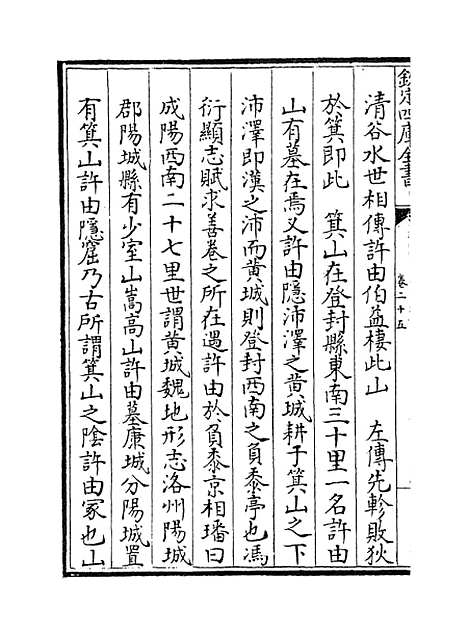 欽定四庫全書
卷二十五
清谷水世相傳許由伯益棲此山　左傳先軫敗狄
於箕即此　箕山在登封縣東南三十里一名許由
山有墓在焉又許由隱沛澤之黄城耕于箕山之下
沛澤即漢之沛而黄城則登封西南之負黍亭也馮
衍顯志賦求善卷之所在遇許由於負黍京相璠曰
成陽西南二十七里世謂黄城魏地形志洛州陽城
郡陽城縣有少室山嵩高山許由墓康城分陽城置
有箕山許由隱窟乃古所謂箕山之陰許由冢也山